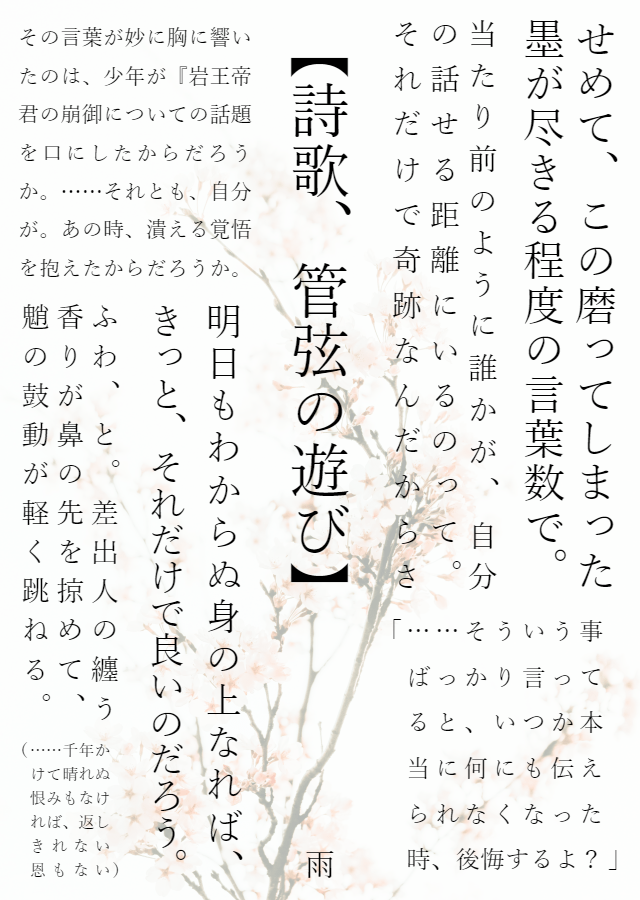 せめて、この磨ってしまった
墨が尽きる程度の言葉数で。
当たり前のように誰かが、自分
の話せる距離にいるのって。
それだけで奇跡なんだからさ
「……そういう事
ばっかり言って
ると、いつか本
当に何にも伝え
られなくなった
時、後悔するよ？」
【詩歌、管弦の遊び】
雨
その言葉が妙に胸に響い
たのは、少年が『岩王帝
君の崩御についての話題
を口にしたからだろう
か。……それとも、自分
が。あの時、潰える覚悟
を抱えたからだろうか。
明日もわからぬ身の上なれば、
きっと、それだけで良いのだろう。
ふわ、と。差出人の纏う
香りが鼻の先を掠めて、
魈の鼓動が軽く跳ねる。
（……千年か
けて晴れぬ
恨みもなけ
れば、返し
きれない
恩もない）